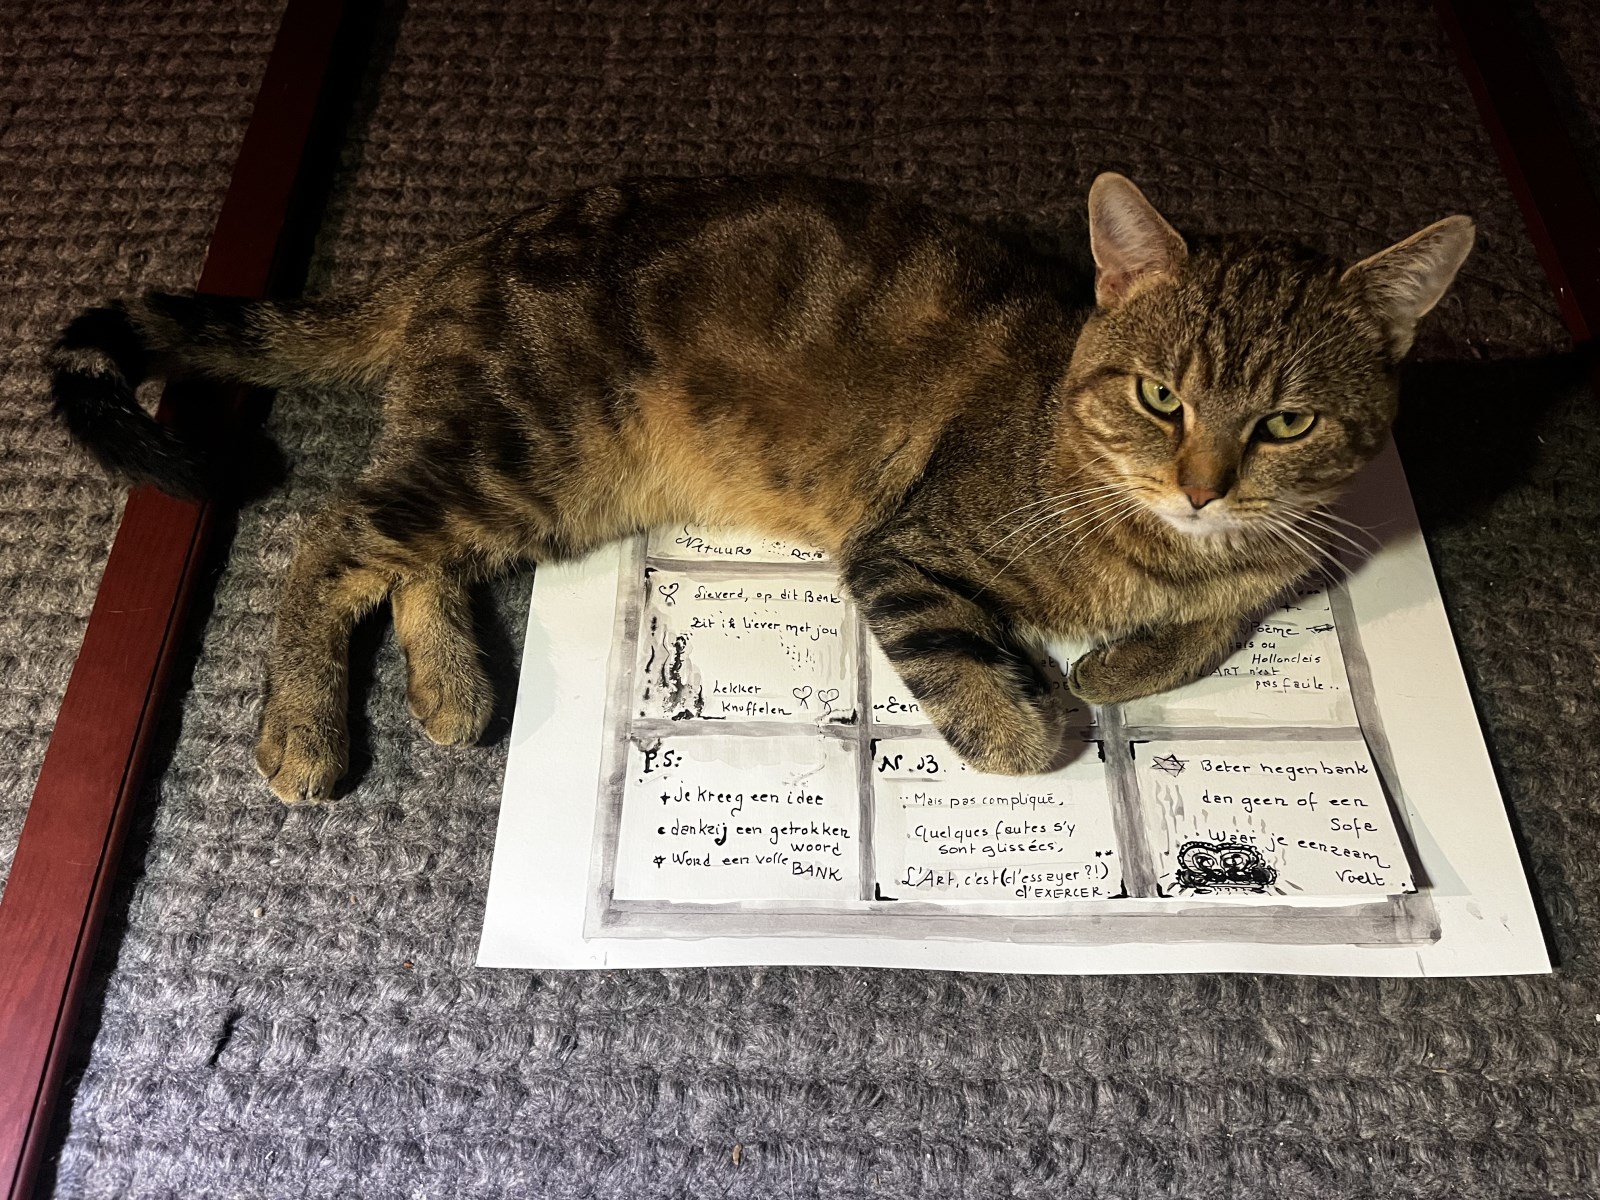 Natuur
Lieverd, op dit Bank
Zit ik liever met jou
Lekker
Knuffelen
Een
Poème
ou
Hollandais
ART n'est
pas facile..
P.S:
Je kreeg een idee
dankzij een getrokken
woord
Word een volle
BANK
N.B. :
Mais pas compliqué,
Quelques fautes s'y
sont glissées,
L'Art, c'est (d'essayer ?!)
d'EXERCER.
Beter negen bank
dan geen of een
Sofa
Waar je eenzaam
Voelt